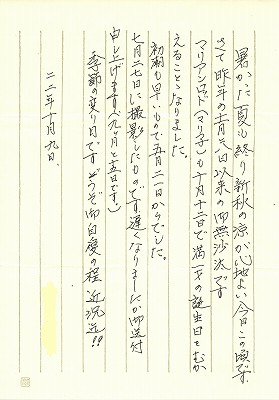 暑かった夏も終り新秋の涼が心地よい今日この頃です。
さて昨年の十月六日以来の御無沙汰です
マリアンロッド(マリ子)も十月十二日で満一才の誕生日をむか
えることになりました。
初潮も早いもので五月二一日からでした。
七月二七日に撮影したものです遅くなりましたが御送付
申し上げます(九ヶ月と十五日です。)
季節の変り目ですどうぞ御自愛の程 近況迄!!
二二年十月九日、